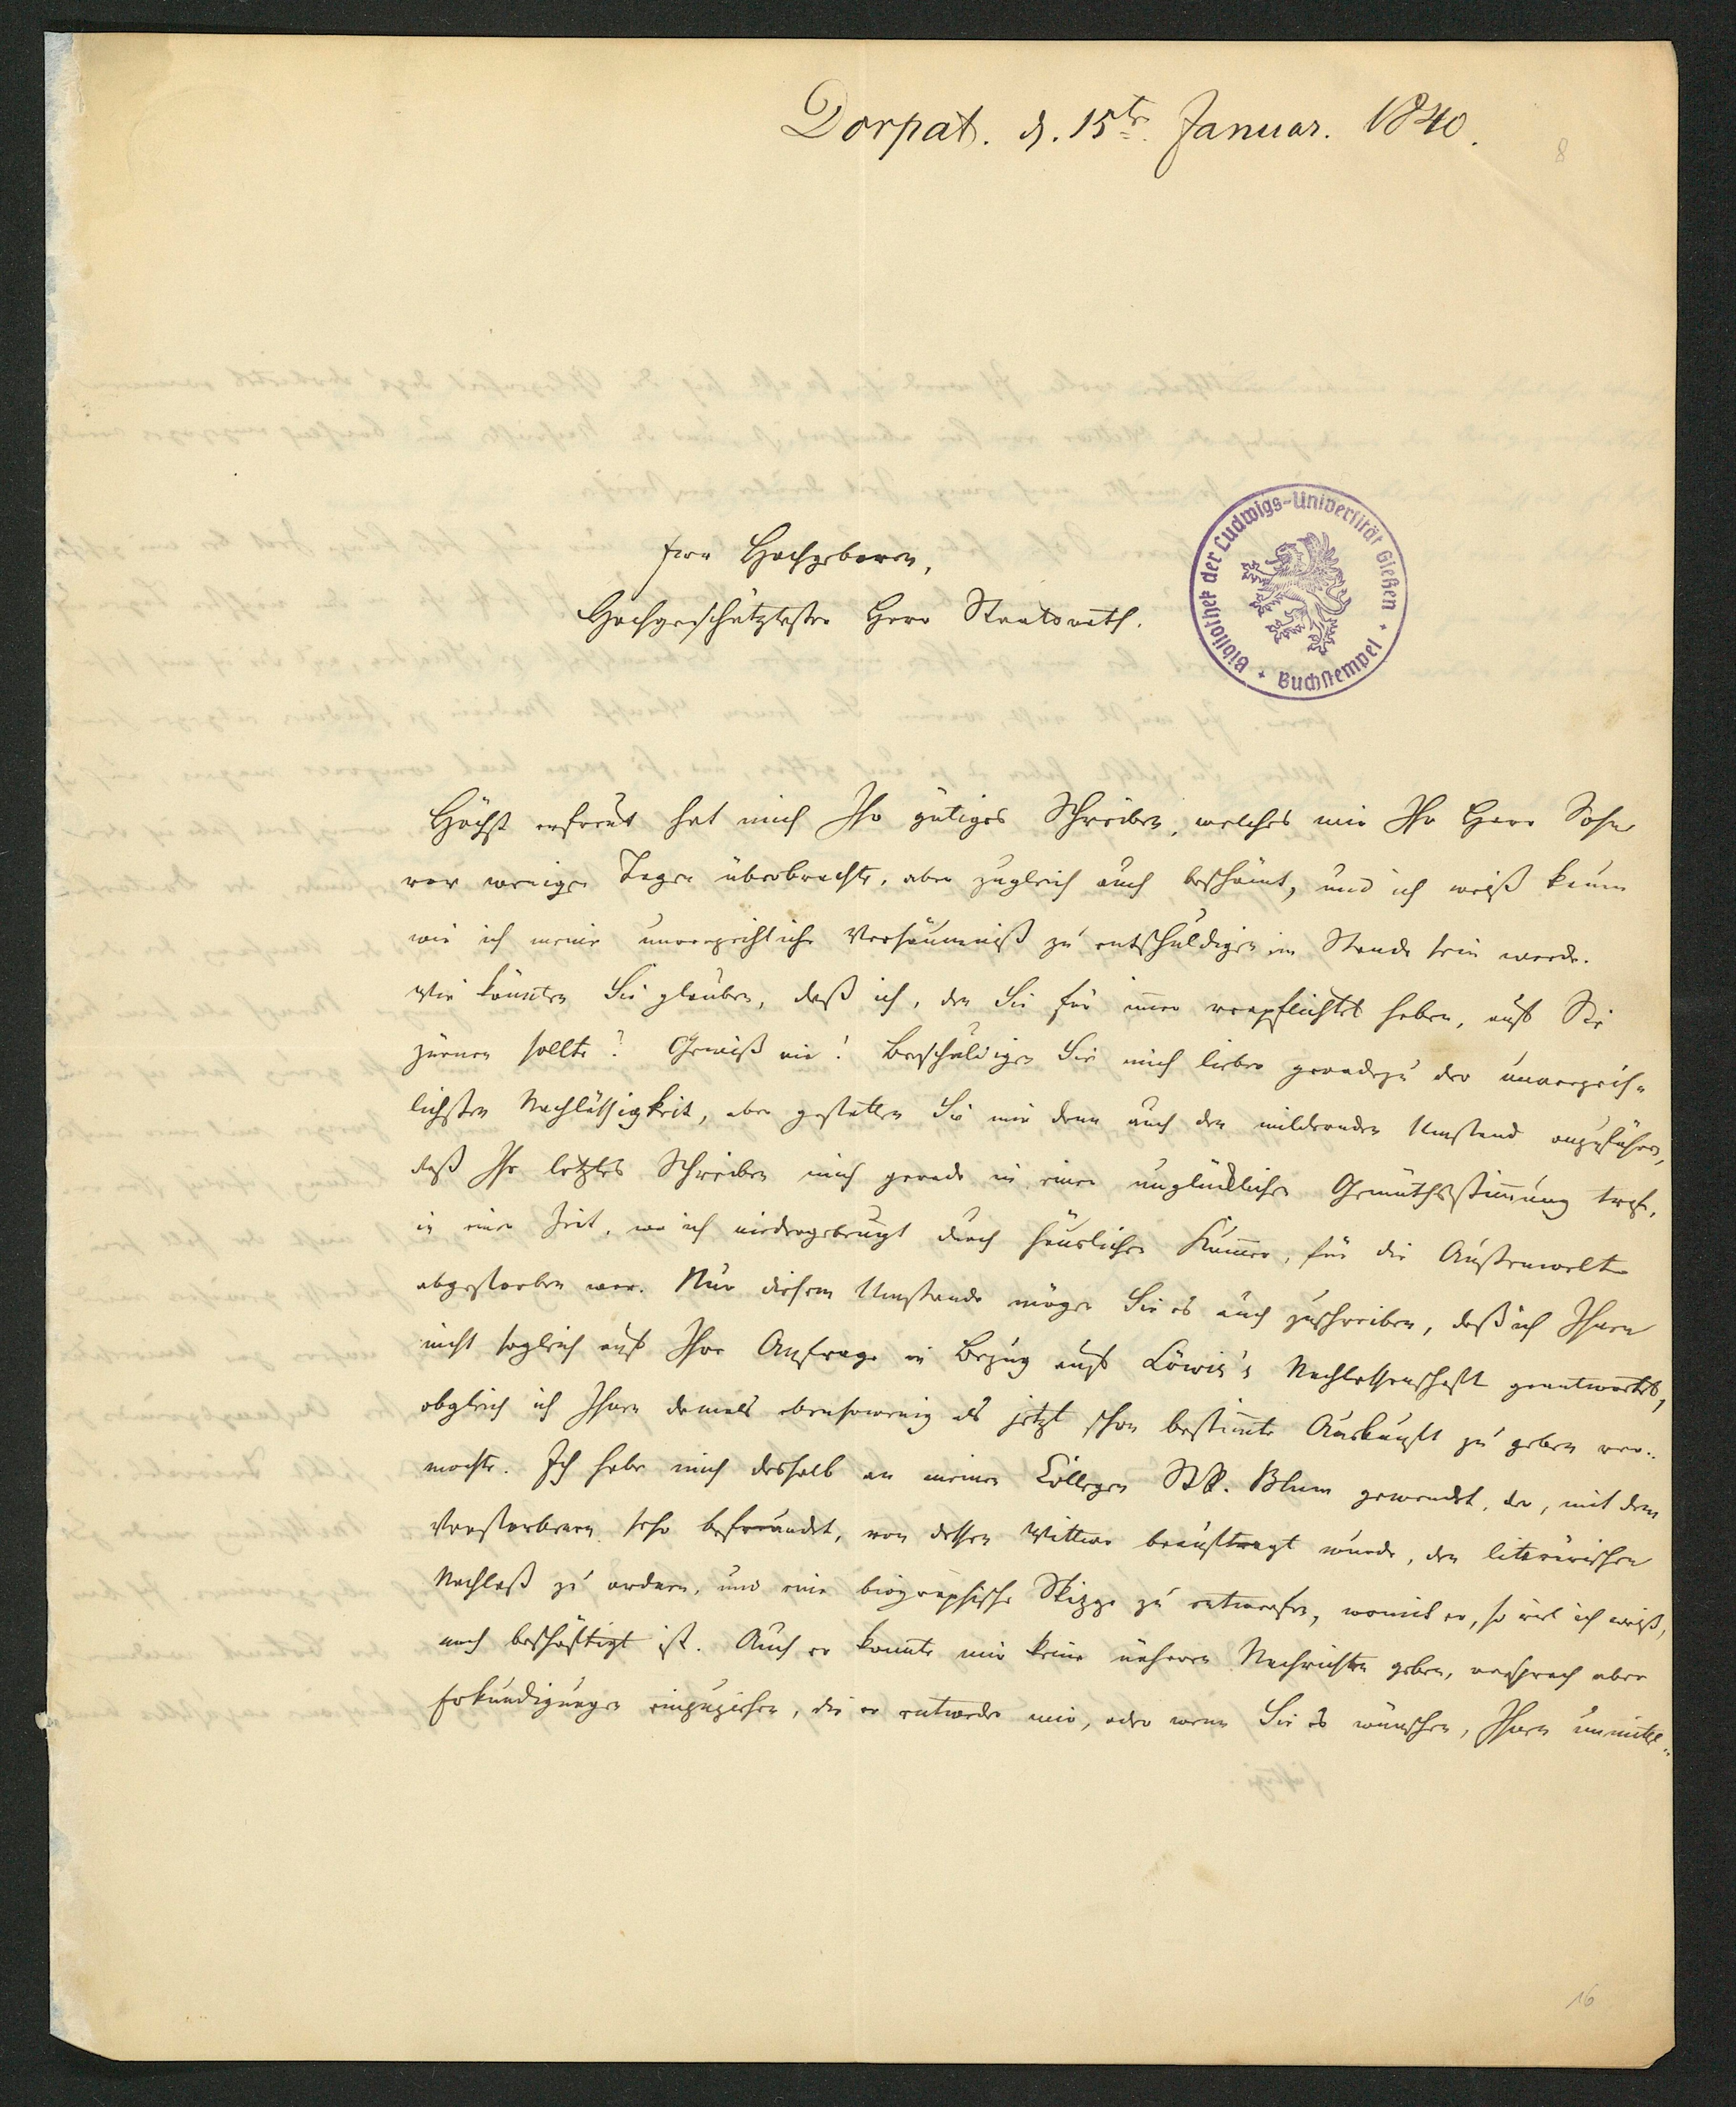 Dorpat. d. 15ten Januar. 1840.
8
Ew. Hochgeboren,
Hochgeschätztester Herr Staatsrath.
Bibliothek der Ludwigs-Universität Gießen
Buchstempel
Höchst erfreut hat mich Ihr gütiges Schreiben, welches mir Ihr Herr Sohn
vor wenigen Tagen überbrachte, aber zugleich auch beschämt, und ich weiß kaum
wie ich meine unverzeihliche Versäumniß zu entschuldigen im Stande sein werde.
Wie könnten Sie glauben, daß ich, den Sie für immer verpflichtet haben, auf Sie
zürnen sollte? Gewiß nie! Beschuldigen Sie mich lieber geradezu der unverzeih-
lichsten Nachläßigkeit, aber gestatten Sie mir denn auch den mildernden Umstand anzuführen,
daß Ihr letztes Schreiben mich gerade in einer unglücklichen Gemüthsstimmung traf,
in einer Zeit, wo ich niedergebeugt durch häuslichen Kummer, für die Außenwelt
abgestorben war. Nur diesem Umstande mögen Sie es auch zuschreiben, daß ich Ihnen
nicht sogleich auf Ihre Anfrage in Bezug auf Löwis's Nachlassenschaft geantwortet,
obgleich ich Ihnen damals ebensowenig als jetzt schon bestimmte Auskunft zu geben ver-
mochte. Ich habe mich deshalb an meinen Collegen StR. Blum gewendet, der, mit dem
Verstorbenen sehr befreundet, von dessen Wittwe beauftragt wurde, den literärischen
Nachlaß zu ordnen, und eine biographische Skizze zu entwerfen, womit er, so viel ich weiß,
noch beschäftigt ist. Auch er konnte mir keine näheren Nachrichten geben, versprach aber
Erkundigungen einzuziehen, die er entweder mir, oder wenn Sie es wünschen, Ihnen unmittel-
16